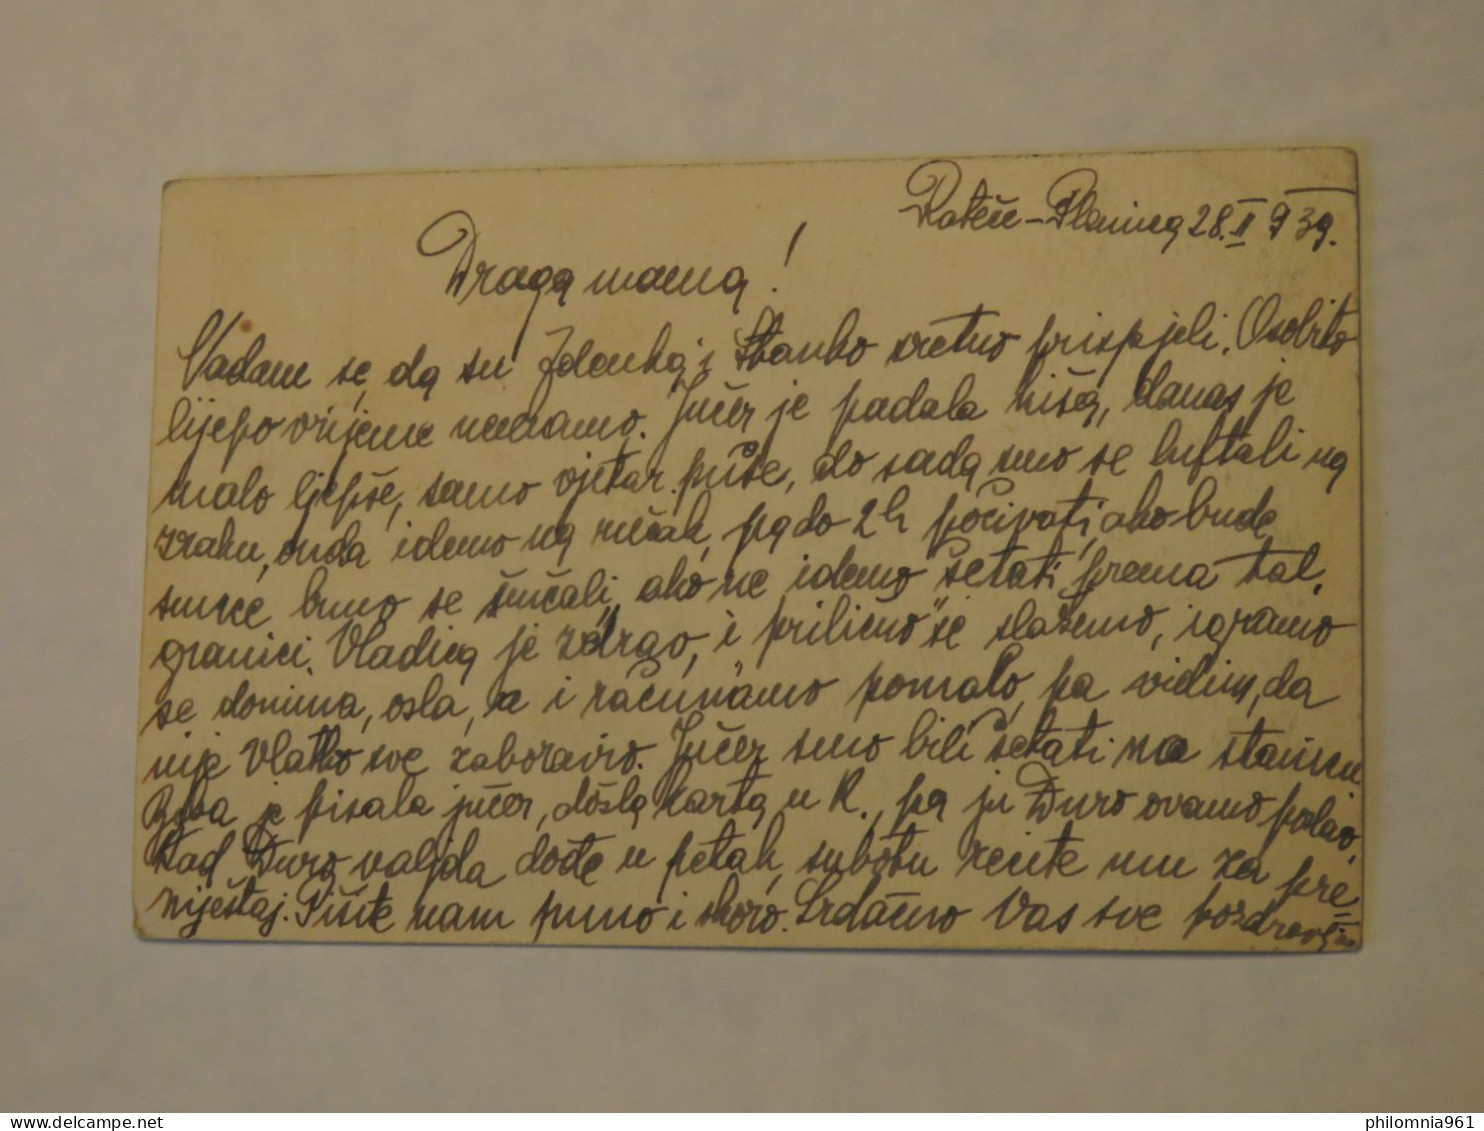 Rateče-Planina 28.II 939.
Draga mama!
Nadam se, da su Zdenka i Stanko sretno prispjeli. Osobito
lijepo vrijeme nemamo. Jučer je padala kiša, danas je
malo ljepše, samo vjetar puše, do sada smo se luftali na
zraku, onda idemo na ručak, pa do 2h počivati, ako bude
sunce bumo se sunčali, ako ne idemo šetati prema tal.
granici. Vladica je zdrav, i prilično se slažemo, igramo
se domina, osla, a i računamo pomalo, pa vidim, da
nije Vlatko sve zaboravio. Jučer smo bili šetati na stanicu
je pisala jučer, došla karta u K., pa ju Đuro ovamo poslao,
Kad Đuro valjda dođe u petak, subotu recite mu za pre-
mještaj. Pišite nam puno i skoro. Srdačno Vas sve pozdravlja
philomnia961